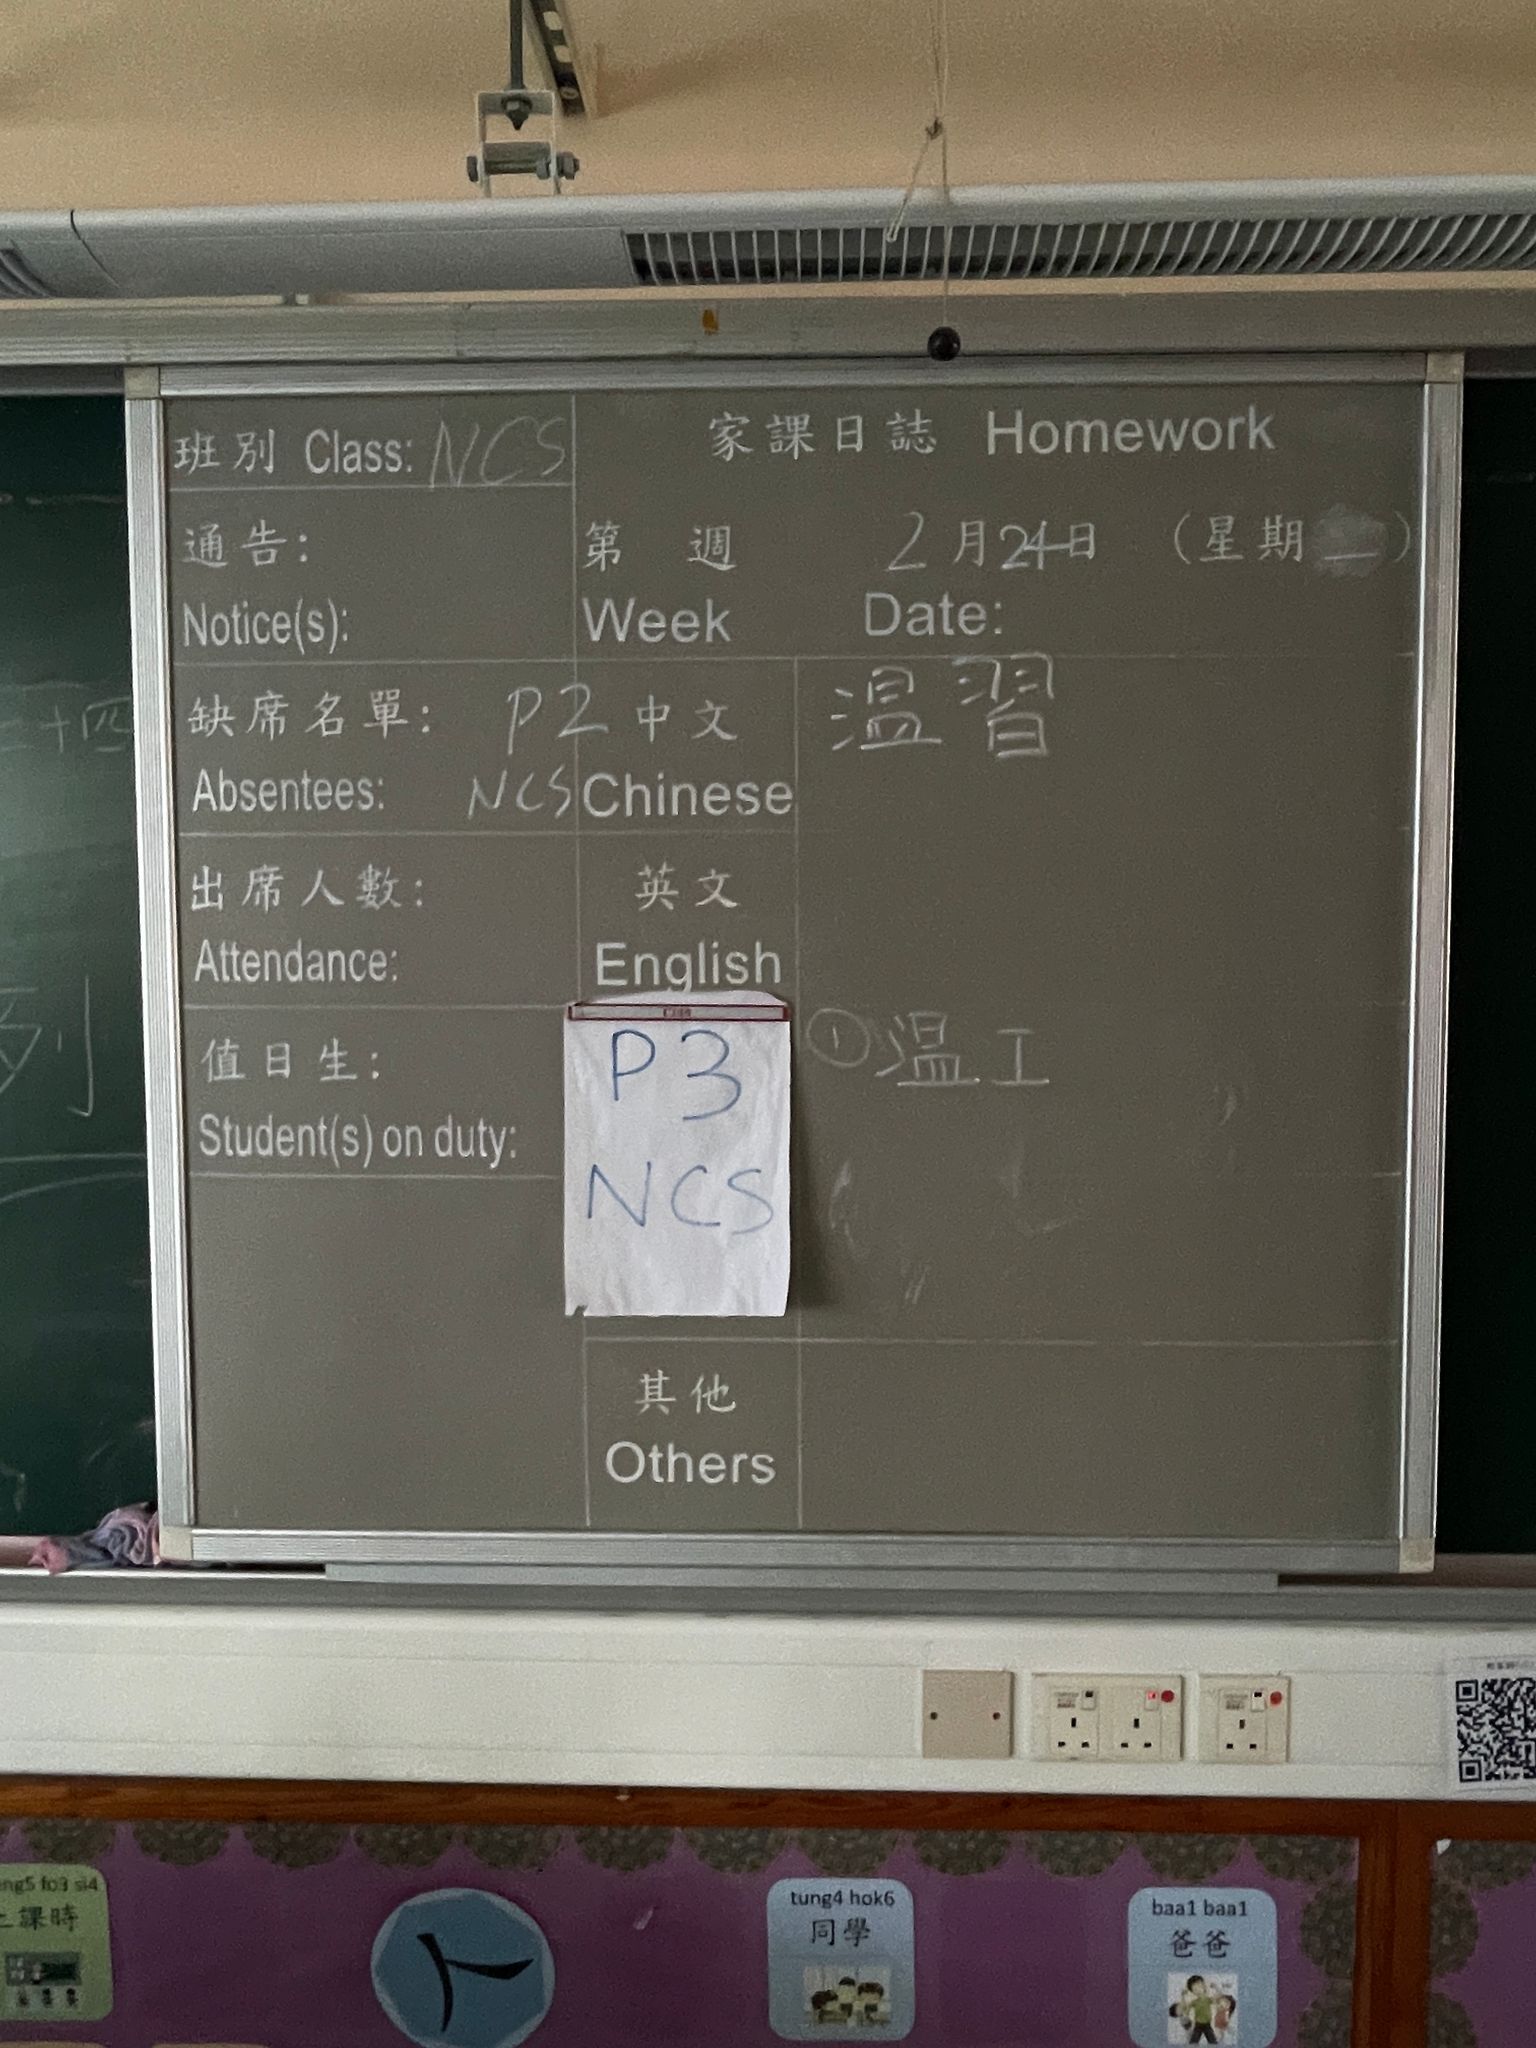 班別 Class: NCS
家課日誌 Homework
通告:
Notice(s):
第 週 2月24日 (星期一)
Week Date:
缺席名單: P2
Absentees: NCS
中文 温習
Chinese
出席人數:
Attendance:
英文
English
值日生:
Student(s) on duty:
P3
NCS
① 温工
其他
Others
十四
列
上課時
卜
tung4 hok6
同學
baa1 baa1
爸爸